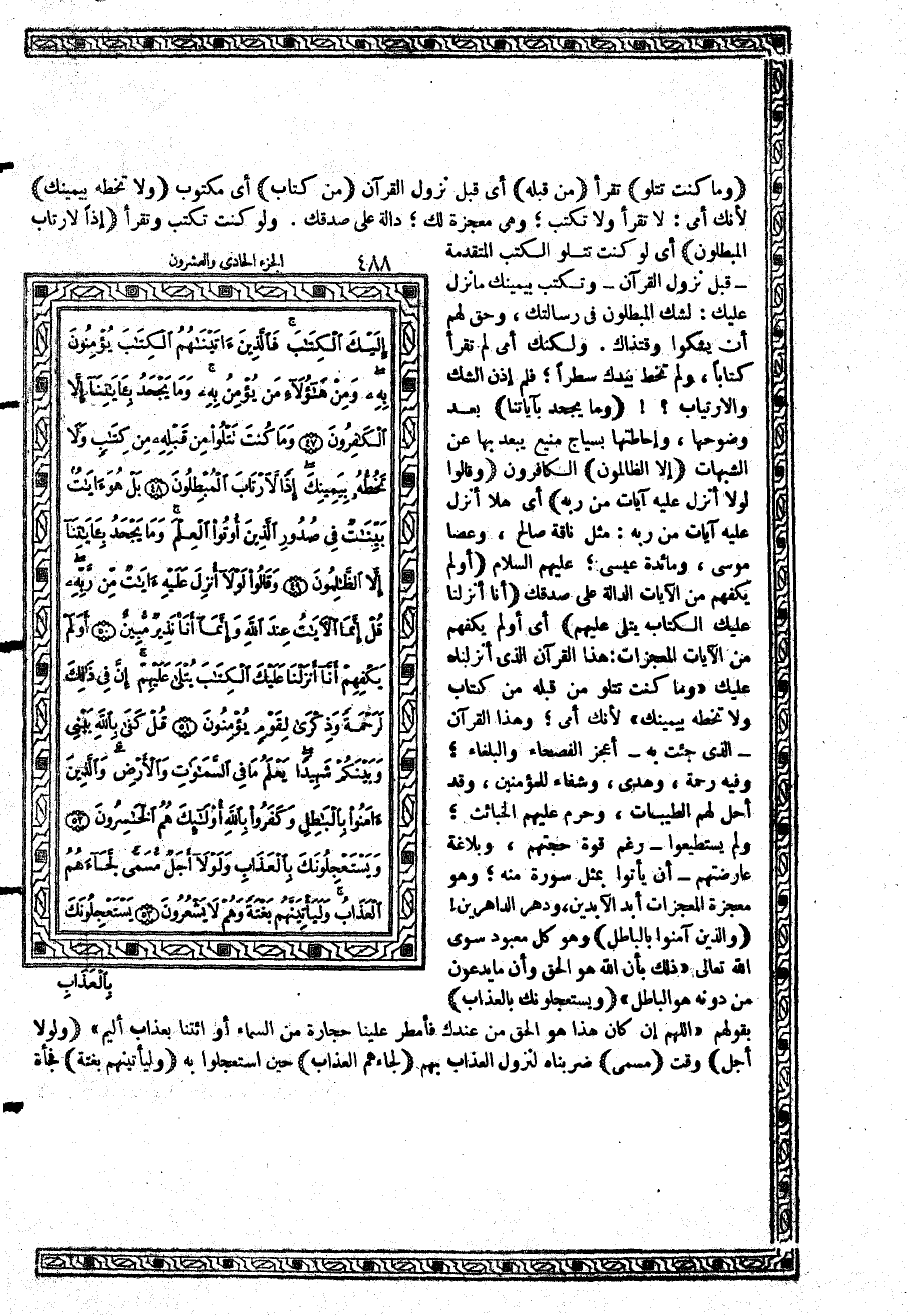 (وما كنت تتلو) تقرأ (من قبله) أى قبل نزول القرآن (من كتاب) أى مكتوب (ولا تخطه بيمينك)
لأنك أمى : لا تقرأ ولا تكتب ؛ وهى معجزة لك ؛ دالة على صدقك . ولو كنت تكتب وتقرأ (إذاً لارتاب
المبطلون) أى لو كنت تتلو الكتب المتقدمة
ــ قبل نزول القرآن ــ وتكتب بيمينك مانزل
عليك : لشك المبطلون فى رسالتك ، وحق لهم
أن يشكوا وقتذاك . ولكنك أمى لم تقرأ
كتاباً ، ولم تخط بيدك سطراً ؛ فلم إذن الشك
والارتياب ؟ ! (وما يجحد بآياتنا) بعد
وضوحها ، وإحاطتها بسياج منيع يبعد بها عن
الشبهات (إلا الظالمون) الكافرون (وقالوا
لولا أنزل عليه آيات من ربه) أى هلا أنزل
عليه آيات من ربه : مثل ناقة صالح ، وعصا
موسى ، ومائدة عيسى ؛ عليهم السلام (أولم
يكفهم من الآيات الدالة على صدقك (أنا أنزلنا
عليك الكتاب يتلى عليهم) أى أولم يكفهم
من الآيات المعجزات : هذا القرآن الذى أنزلناه
عليك «وما كنت تتلو من قبله من كتاب
ولا تخطه بيمينك» لأنك أمى ؛ وهذا القرآن
ــ الذى جئت به ــ أعجز الفصحاء والبلغاء ؛
وفيه رحمة ، وهدى ، وشفاء للمؤمنين ، وقد
أحل لهم الطيبات ، وحرم عليهم الخبائث ؛
ولم يستطيعوا ــ رغم قوة حجتهم ، وبلاغة
عارضتهم ــ أن يأتوا بمثل سورة منه ؛ وهو
معجزة المعجزات أبد الآبدين ، ودهر الداهرين !
(والذين آمنوا بالباطل) وهو كل معبود سوى
الله تعالى «ذلك بأن الله هو الحق وأن مايدعون
من دونه هو الباطل» (ويستعجلونك بالعذاب)
بقولهم «اللهم إن كان هذا هو الحق من عندك فأمطر علينا حجارة من السماء أو ائتنا بعذاب أليم» (ولولا
أجل) وقت (مسمى) ضربناه لنزول العذاب بهم (لجاءهم العذاب) حين استعجلوا به (وليأتينهم بغتة) فجأة
٤٨٨ الجزء الحادى والعشرون
إِلَيْكَ ٱلْكِتَٰبَ ۚ فَٱلَّذِينَ ءَاتَيْنَٰهُمُ ٱلْكِتَٰبَ يُؤْمِنُونَ
بِهِۦ ۖ وَمِنْ هَٰٓؤُلَآءِ مَن يُؤْمِنُ بِهِۦ ۚ وَمَا يَجْحَدُ بِـَٔايَٰتِنَآ إِلَّا
ٱلْكَٰفِرُونَ ٤٧ وَمَا كُنتَ تَتْلُوا۟ مِن قَبْلِهِۦ مِن كِتَٰبٍ وَلَا
تَخُطُّهُۥ بِيَمِينِكَ ۖ إِذًا لَّٱرْتَابَ ٱلْمُبْطِلُونَ ٤٨ بَلْ هُوَ ءَايَٰتٌۢ
بَيِّنَٰتٌ فِى صُدُورِ ٱلَّذِينَ أُوتُوا۟ ٱلْعِلْمَ ۚ وَمَا يَجْحَدُ بِـَٔايَٰتِنَآ
إِلَّا ٱلظَّٰلِمُونَ ٤٩ وَقَالُوا۟ لَوْلَآ أُنزِلَ عَلَيْهِ ءَايَٰتٌ مِّن رَّبِّهِۦ ۖ
قُلْ إِنَّمَا ٱلْـَٔايَٰتُ عِندَ ٱللَّهِ وَإِنَّمَآ أَنَا۠ نَذِيرٌ مُّبِينٌ ٥٠ أَوَلَمْ
يَكْفِهِمْ أَنَّآ أَنزَلْنَا عَلَيْكَ ٱلْكِتَٰبَ يُتْلَىٰ عَلَيْهِمْ ۚ إِنَّ فِى ذَٰلِكَ
لَرَحْمَةً وَذِكْرَىٰ لِقَوْمٍ يُؤْمِنُونَ ٥١ قُلْ كَفَىٰ بِٱللَّهِ بَيْنِى
وَبَيْنَكُمْ شَهِيدًا ۖ يَعْلَمُ مَا فِى ٱلسَّمَٰوَٰتِ وَٱلْأَرْضِ ۗ وَٱلَّذِينَ
ءَامَنُوا۟ بِٱلْبَٰطِلِ وَكَفَرُوا۟ بِٱللَّهِ أُو۟لَٰٓئِكَ هُمُ ٱلْخَٰسِرُونَ ٥٢
وَيَسْتَعْجِلُونَكَ بِٱلْعَذَابِ ۚ وَلَوْلَآ أَجَلٌ مُّسَمًّى لَّجَآءَهُمُ
ٱلْعَذَابُ ۚ وَلَيَأْتِيَنَّهُم بَغْتَةً وَهُمْ لَا يَشْعُرُونَ ٥٣ يَسْتَعْجِلُونَكَ
بِٱلْعَذَابِ